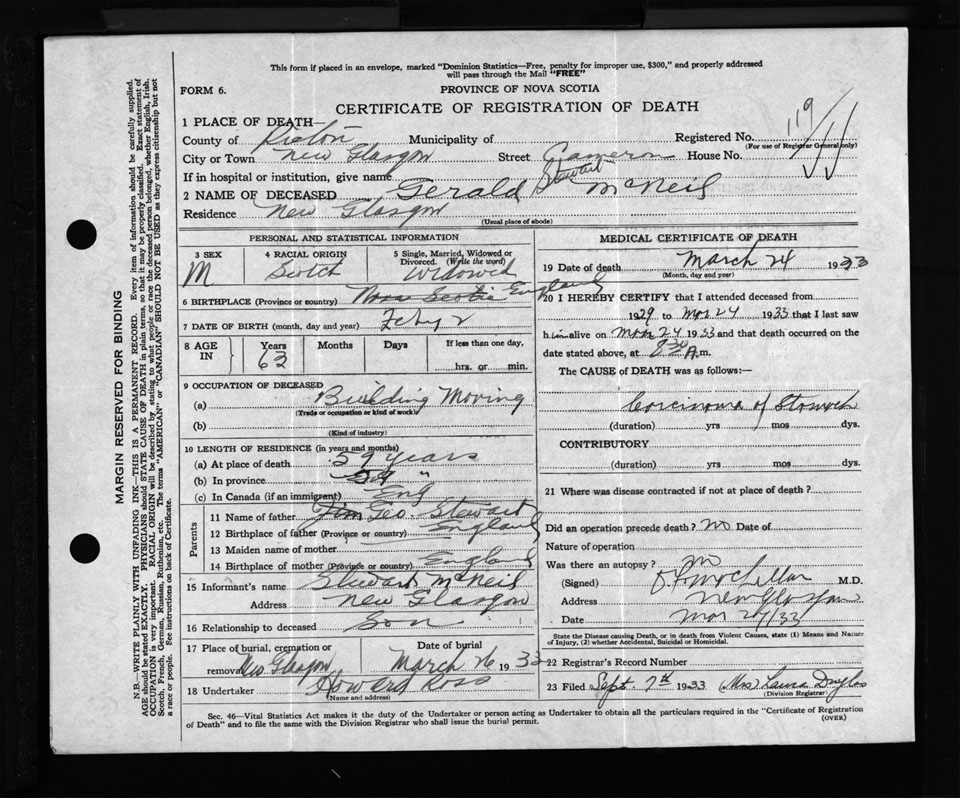 This form if placed in an envelope, marked "Dominion Statistics—Free, penalty for improper use, $300," and properly addressed
will pass through the Mail "FREE"
FORM 6.
PROVINCE OF NOVA SCOTIA
CERTIFICATE OF REGISTRATION OF DEATH
119
1 PLACE OF DEATH—
County of Pictou Municipality of Registered No.
(For use of Registrar General only)
City or Town New Glasgow Street Cameron House No.
If in hospital or institution, give name
2 NAME OF DECEASED Gerald Stewart McNeil
Residence New Glasgow
(Usual place of abode)
PERSONAL AND STATISTICAL INFORMATION
3 SEX M
4 RACIAL ORIGIN Scotch
5 Single, Married, Widowed or Divorced. (Write the word) Widowed
6 BIRTHPLACE (Province or country) Nova Scotia England
7 DATE OF BIRTH (month, day and year) Feby 2
8 AGE IN Years 63 Months Days If less than one day, hrs. or min.
9 OCCUPATION OF DECEASED
(a) Building Moving
(Trade or occupation or kind of work)
(b)
(Kind of industry)
10 LENGTH OF RESIDENCE (in years and months)
(a) At place of death 59 years
(b) In province 59 "
(c) In Canada (if an immigrant) Eng
Parents
11 Name of father Jim Geo. Stewart
12 Birthplace of father (Province or country) England
13 Maiden name of mother
14 Birthplace of mother (Province or country) England
15 Informant's name Stewart McNeil
Address New Glasgow
16 Relationship to deceased Son
17 Place of burial, cremation or removal New Glasgow Date of burial March 26 1933
18 Undertaker Howard Ross
(Name and address)
MEDICAL CERTIFICATE OF DEATH
19 Date of death March 24 1933
(Month, day and year)
20 I HEREBY CERTIFY that I attended deceased from
1929 to Mar 24 1933 that I last saw
him alive on Mar 24 1933 and that death occurred on
date stated above, at A.m.
The CAUSE of DEATH was as follows:—
Carcinoma of Stomach
(duration) yrs mos dys.
CONTRIBUTORY
(duration) yrs mos dys.
21 Where was disease contracted if not at place of death?
Did an operation precede death? no Date of
Nature of operation
Was there an autopsy? no
(Signed) M.D.
Address New Glasgow
Date Mar /33
State the Disease causing Death, or in death from Violent Causes, state (1) Means and Nature
of Injury, (2) whether Accidental, Suicidal or Homicidal.
22 Registrar's Record Number
23 Filed Sept. 7th 1933 (Mrs) Laura Douglas
(Division Registrar)
Sec. 46—Vital Statistics Act makes it the duty of the Undertaker or person acting as Undertaker to obtain all the particulars required in the "Certificate of Registration
of Death" and to file the same with the Division Registrar who shall issue the burial permit.
(OVER)
MARGIN RESERVED FOR BINDING
N.B.—WRITE PLAINLY WITH UNFADING INK—THIS IS A PERMANENT RECORD. Every item of information should be carefully supplied.
AGE should be stated EXACTLY. PHYSICIANS should STATE CAUSE OF DEATH in plain terms, so that it may be properly classified. Exact statement of
OCCUPATION is very important. RACIAL ORIGIN will be described by stating to what people or race the deceased person belonged, whether English, Irish,
Scotch, French, German, Russian, Ruthenian, etc. The terms "AMERICAN" or "CANADIAN" SHOULD NOT BE USED as they express citizenship but not
a race or people. See instructions on back of Certificate.